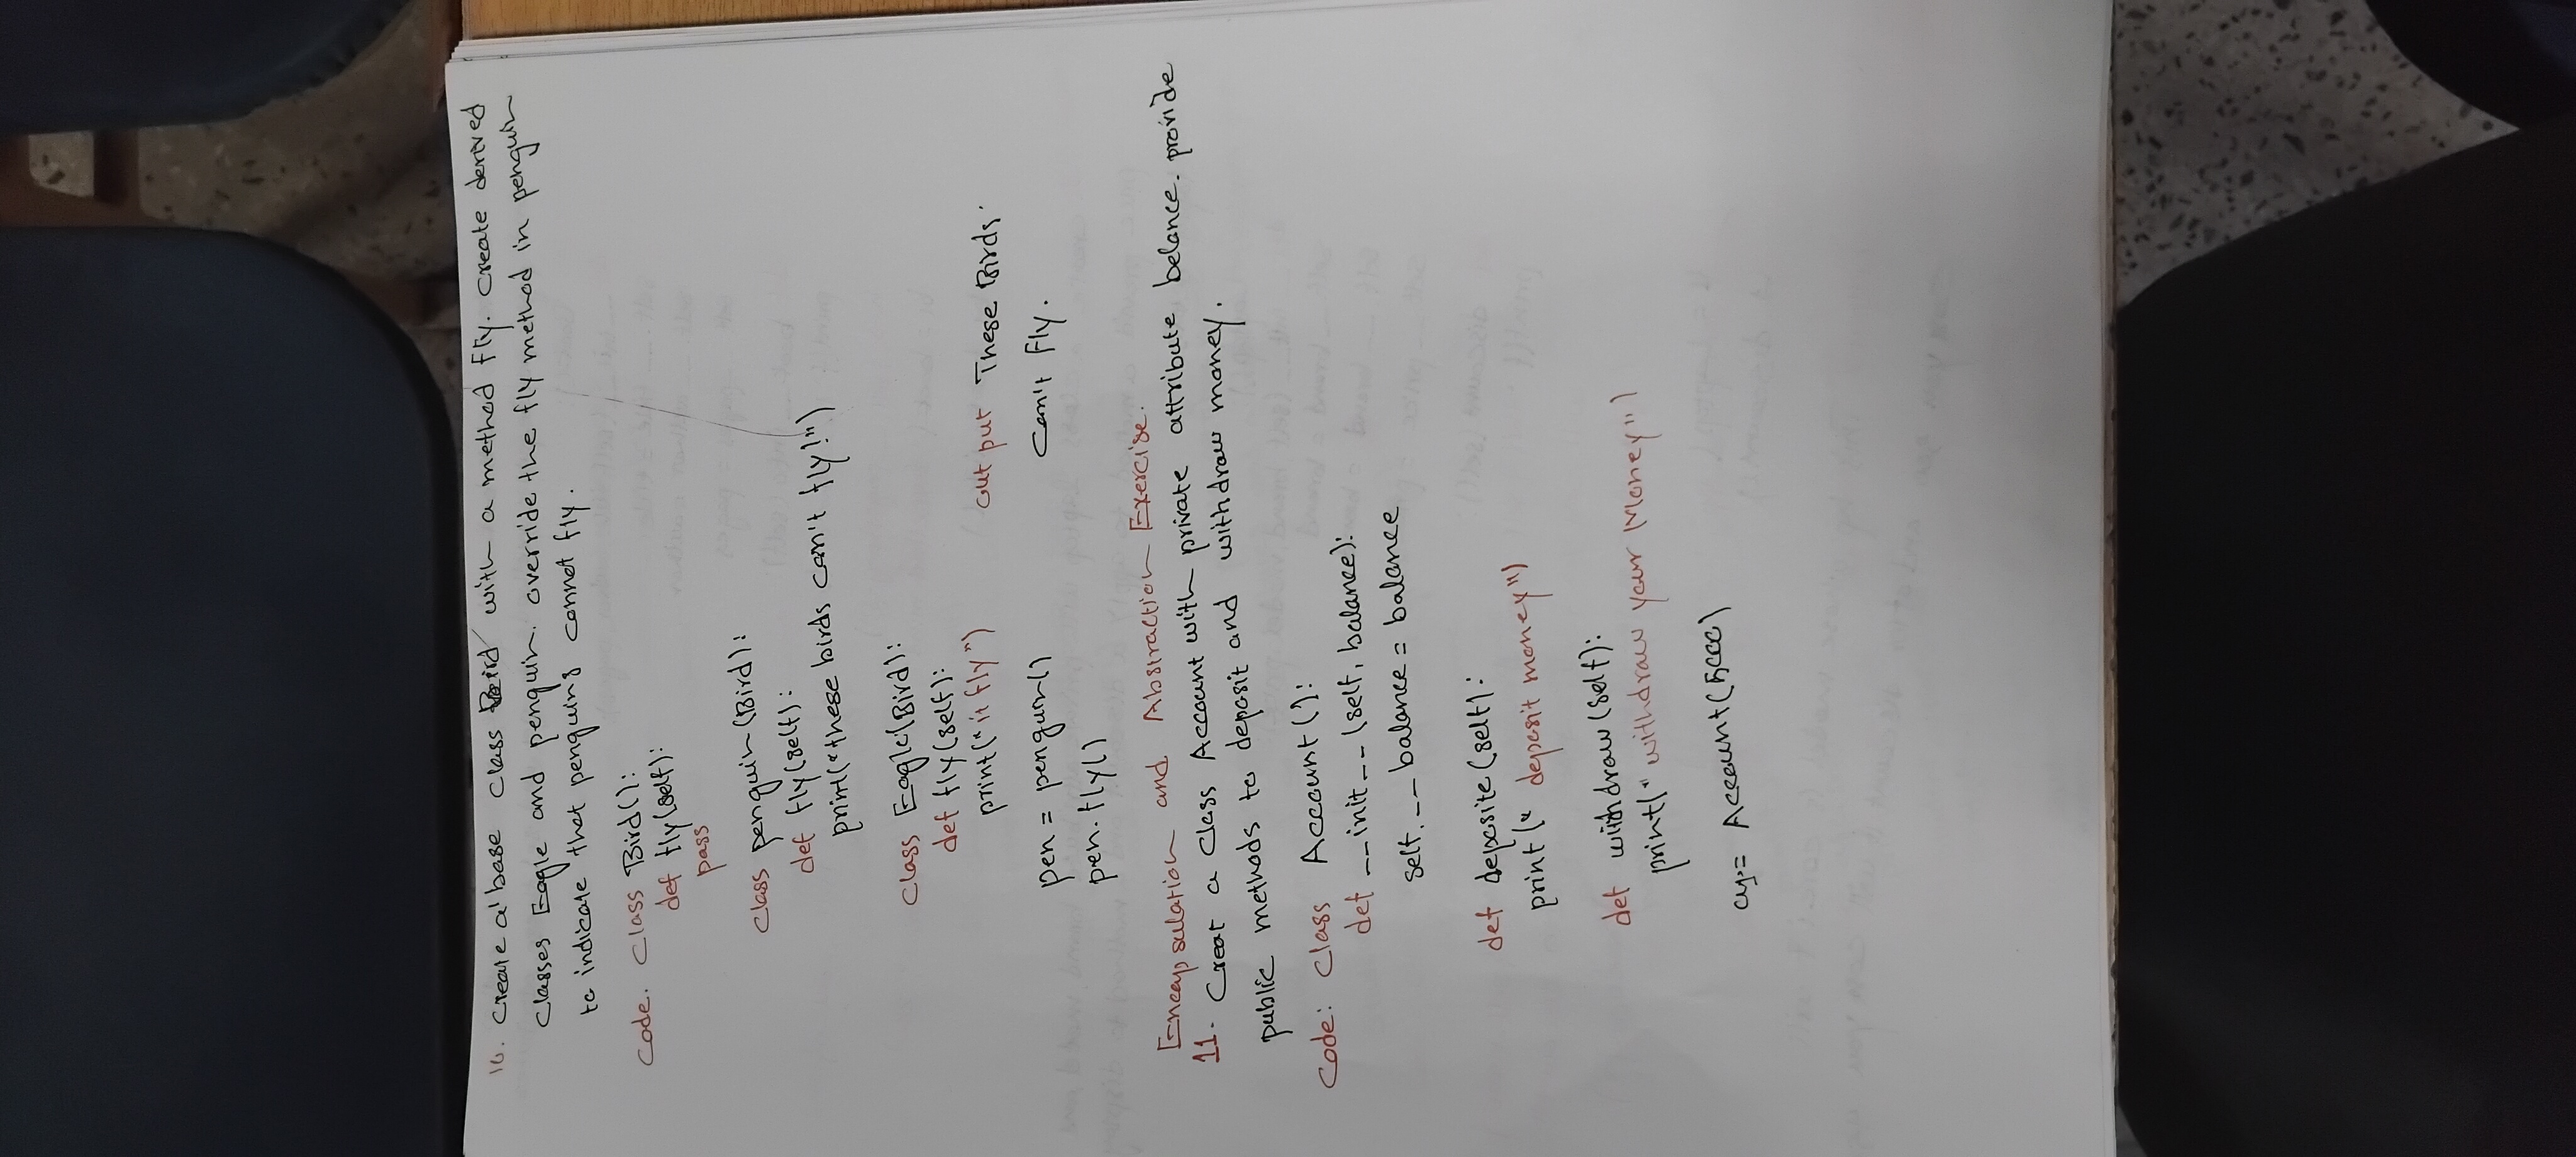 10. Create a base class Bird with a method fly. Create derived
classes Eagle and penguin. override the fly method in penguin
to indicate that penguins connot fly.
Code. Class Bird():
def fly(self):
pass
Class penguin(Bird):
def fly(self):
print("these birds can't fly!")
Class Eagle(Bird):
def fly(self):
print("it fly")
out put These Birds
can't fly.
pen = penguin()
pen.fly()
Encapsulation and Abstraction Exercise.
11. Creat a Class Account with private attribute belance. provide
public methods to deposit and withdraw money.
Code: Class Account():
def __init__(self, balance):
self.__balance = balance
def deposite(self):
print(" deposit money")
def withdraw(self):
print(" withdraw your Money")
= Account(5000)